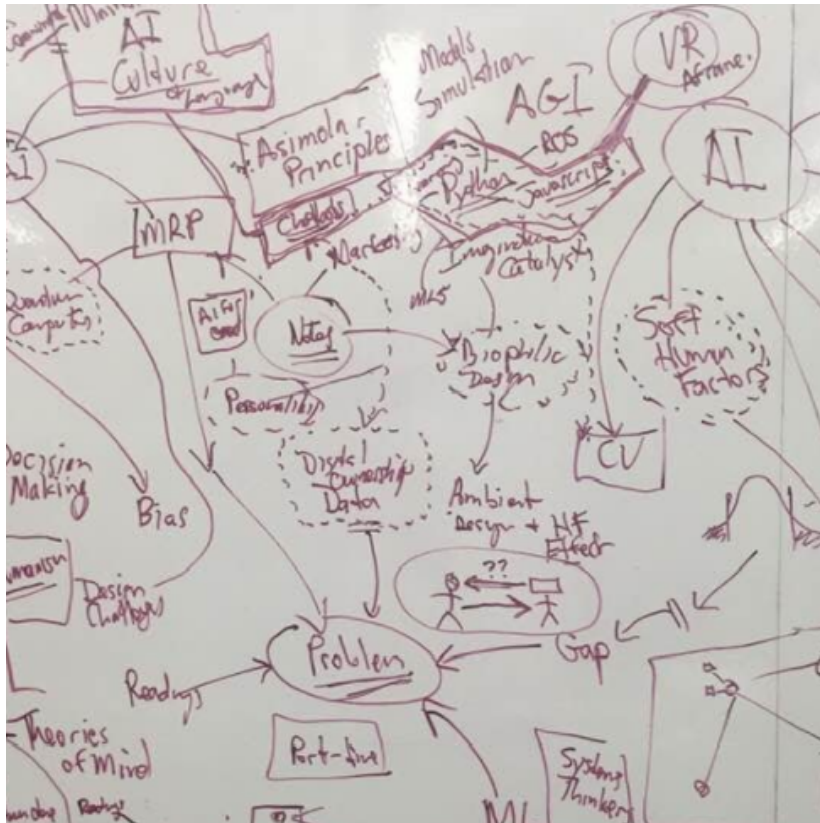 AI
Culture
of Language
Models
Simulation
AGI
ROS
VR
Aframe.
AI
AI
Asimola -
Principles
Python
Javascript
Chatbots
MRP
Marketing
Imagination
Catalyst
ML5
Quantum
Computing
AI For
Good
Notes
Biophilic
Design
Soft
Human
Factors
Personaliship
CV
Digital
Ownership
Data
Decision
Making
Bias
Ambient
Design + HF
Effect
??
Design
Challenges
Problem
Gap
Readings
Theories
of Mind
Part-time
Systems
Thinkers
Readings
ML